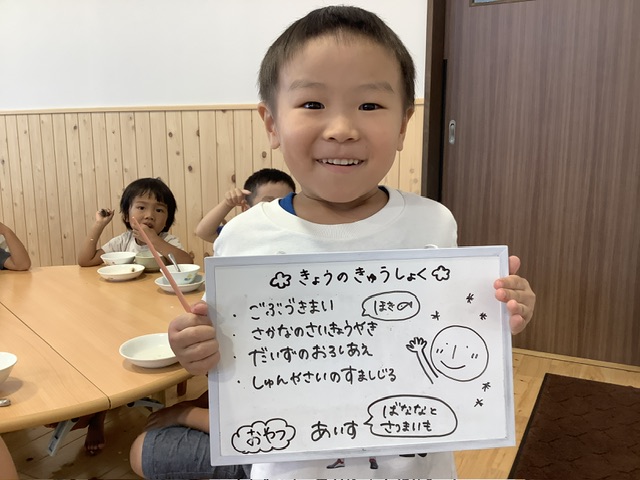 きょうのきゅうしょく
・ごぶづきまい
ほき
・さかなのさいきょうやき
・だいずのおろしあえ
・しゅんやさいのすましじる
おやつ
あいす
ばななと
さつまいも